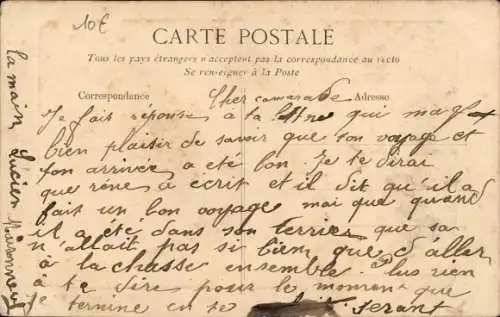 10€
CARTE POSTALE
Tous les pays étrangers n'acceptent pas la correspondance au recto
Se renseigner à la Poste
Correspondance
Adresse
Cher camarade
Je fais réponse à ta lettre qui ma fa
bien plaisir de savoir que ton voyage et
ton arrivée a été bon. Je te dirai
que réné à écrit et il dit qu'il a
fait un bon voyage mai que quand
il a été dans son terrier que sa
n'allait pas si bien que d'aller
à la chasse ensemble. Plus rien
à te dire pour le moment que
je termine en te serant
la main Lucien